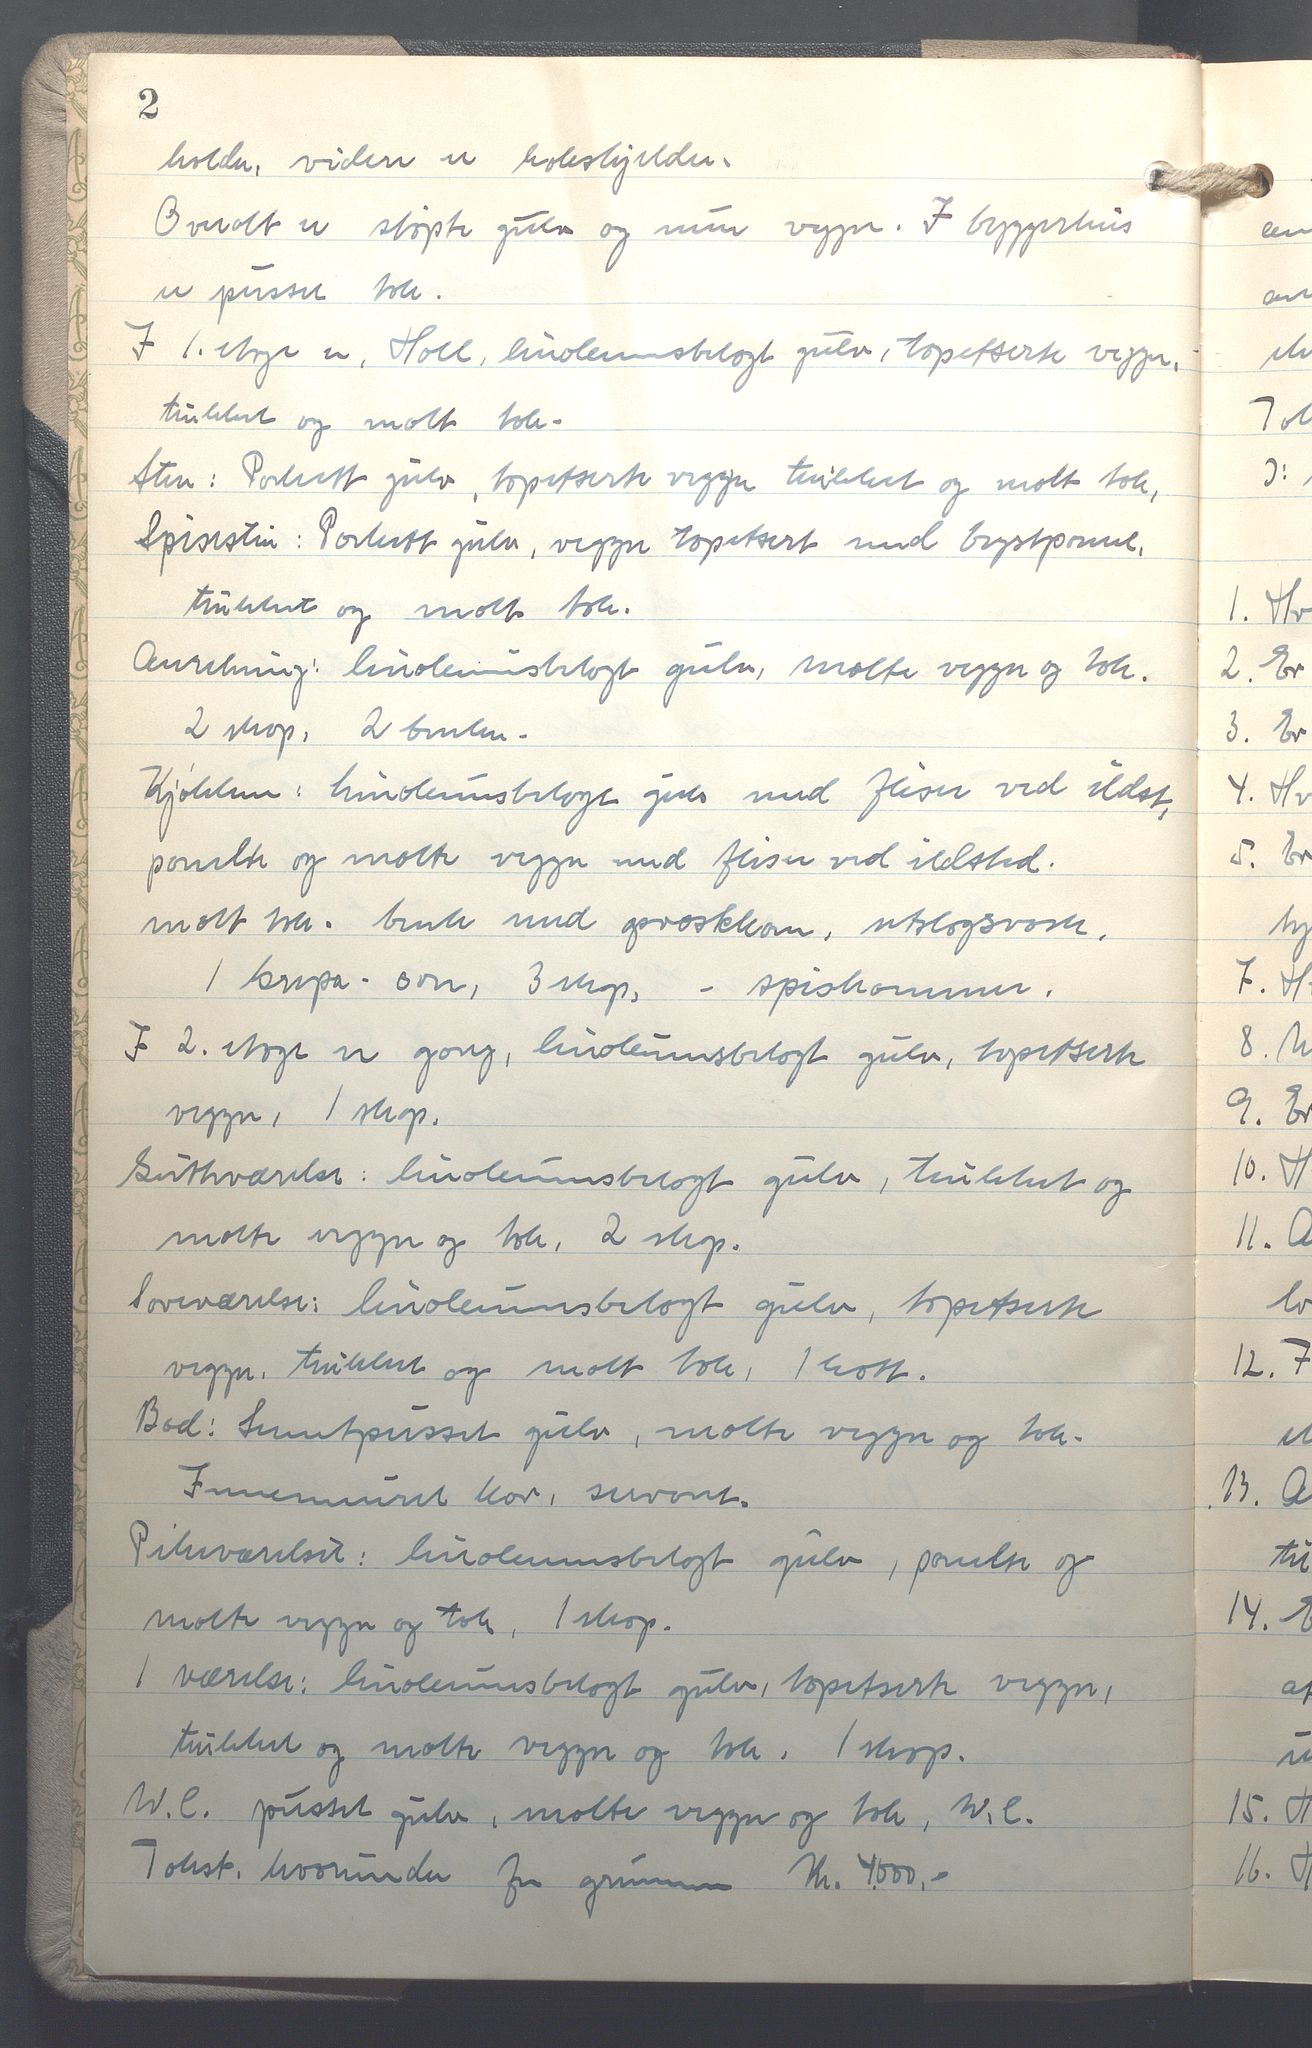 2
bolder, videre er kokskjelder.
Overalt er støpte gulv og mur vegger. I bryggerhus
er pusset tak.
I 1. etage er, Hall, linoleumsbelagt gulv, tapetserte vegger,
trukket og malt tak.
Stue: Parkett gulv, tapetserte vegger trukket og malt tak,
Spisestue: Parkett gulv, vegger tapetsert med brystpanel,
trukket og malt tak.
Anretning: linoleumsbelagt gulv, malte vegger og tak.
2 skap, 2 benker.
Kjøkken: linoleumsbelagt gulv med fliser ved ildst,
panelte og malte vegger med fliser ved ildsted.
malt tak. benk med opvaskkum, utslagsvask,
1 ovn, 3 skap, - spiskammer.
I 2. etage er gang, linoleumsbelagt gulv, tapetserte
vegger, 1 skap.
Gutteværelse: linoleumsbelagt gulv, trukket og
malte vegger og tak, 2 skap.
Soveværelse: linoleumsbelagt gulv, tapetserte
vegger, trukket og malt tak, 1 kott.
Bad: Sementpusset gulv, malte vegger og tak.
Innemuret kar, servant.
Pikeværelset: linoleumsbelagt gulv, panelte og
malte vegger og tak, 1 skap.
1 værelse: linoleumsbelagt gulv, tapetserte vegger,
trukket og malte vegger og tak. 1 skap.
W.C. pusset gulv, malte vegger og tak, W.C.
Takst. hvorunder for grunnen Kr. 4000,-
1. Hv
2. Er
3. Er
4. Hv
5. Er
7. H
8.
9. Er
10. H
11. A
12. F
13. A
14. E
15. H
16. H